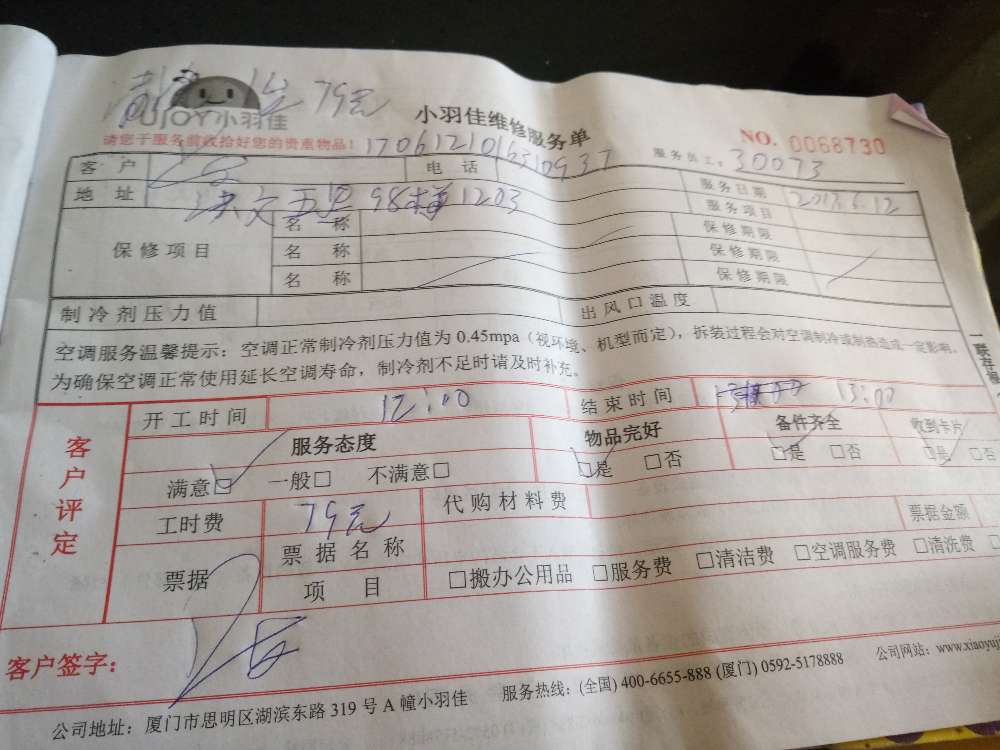 79元
JOY小羽佳
小羽佳维修服务单
NO. 0068730
请您于服务前收拾好您的贵重物品!
服务员工: 30073
客 户
电 话
服务日期 2017.6.12
地 址 98 1203
服务项目
保修项目
名 称
保修期限
名 称
保修期限
名 称
保修期限
制冷剂压力值
出风口温度
空调服务温馨提示:空调正常制冷剂压力值为 0.45mpa(视环境、机型而定),拆装过程会对空调制冷或制热造成一定影响。
为确保空调正常使用延长空调寿命,制冷剂不足时请及时补充。
一联存根
客户评定
开工时间 12:00
结束时间 13:00
服务态度
物品完好
备件齐全
收到卡片
满意□ 一般□ 不满意□
□是 □否
□是 □否
□是 □否
工时费 79元
代购材料费
票据
票据名称
票据金额
项 目
□搬办公用品 □服务费 □清洁费 □空调服务费 □清洗费 □
客户签字:
公司地址:厦门市思明区湖滨东路 319 号 A 幢小羽佳 服务热线:(全国) 400-6655-888 (厦门) 0592-5178888 公司网站:www.xiaoyuj